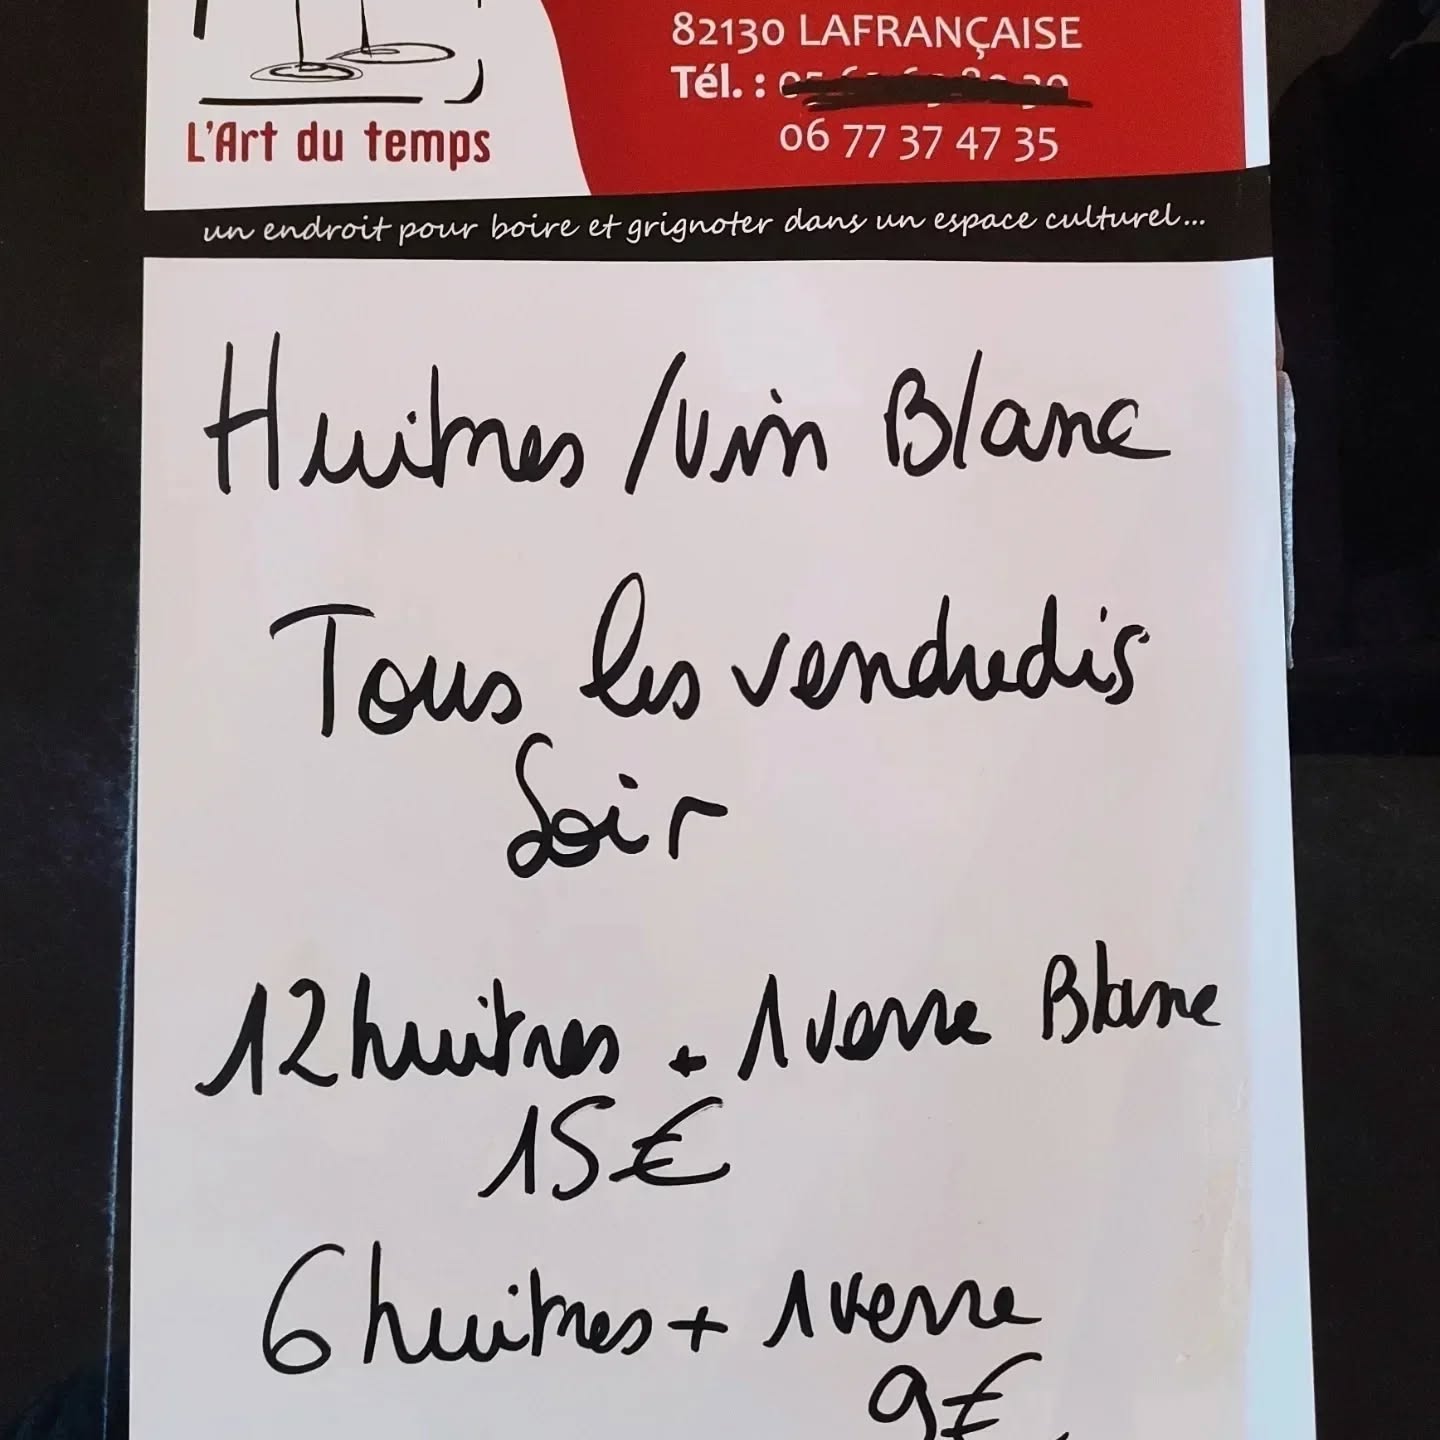 82130 LAFRANÇAISE
Tél. :
06 77 37 47 35
L'Art du temps
un endroit pour boire et grignoter dans un espace culturel...
Huitres / vin Blanc
Tous les vendredis
Soir
12 huitres + 1 verre Blanc
15€
6 huitres + 1 verre
9€